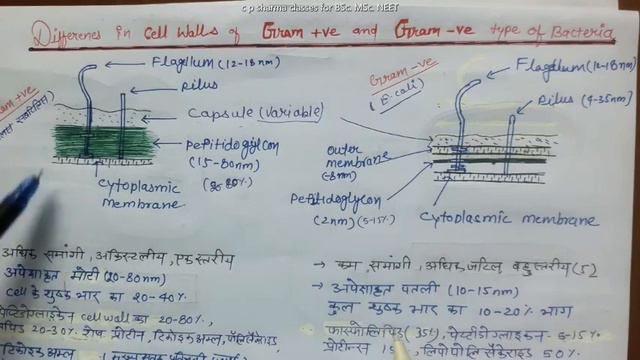 c p sharma classes for BSc. MSc. NEET
Differenes in Cell Walls of Gram +ve and Gram -ve type of Bacteria
Flagellum (12-18nm)
Pilus
Capsule (variable)
Peptidoglycon
(15-80nm)
Cytoplasmic
membrane
Gram -ve
(E.coli)
Flagellum (12-18nm)
Pilus (4-35nm)
outer
membrane
(-8nm)
Peptidoglycon
(2nm) (5-15%)
Cytoplasmic membrane
अधिक समांगी, अक्रिस्टलीय, एक स्तरीय
अपेक्षाकृत मोटी (20-80nm)
cell के शुष्क भार का 20-40%
cell wall का 20-80%,
20-30% शेष प्रोटीन, टिकोइक अम्ल, पॉलिसैकेराइड
टिकोइक अम्ल
→ कम समांगी, अधिक जटिल बहुस्तरीय (5)
→ अपेक्षाकृत पतली (10-15nm)
कुल शुष्क भार का 10-20% भाग
फास्फोलिपिड (35%), पेप्टीडोग्लाइकन - 5-15%
प्रोटीन्स 15% लिपोपॉलि सैकेराइड 50%